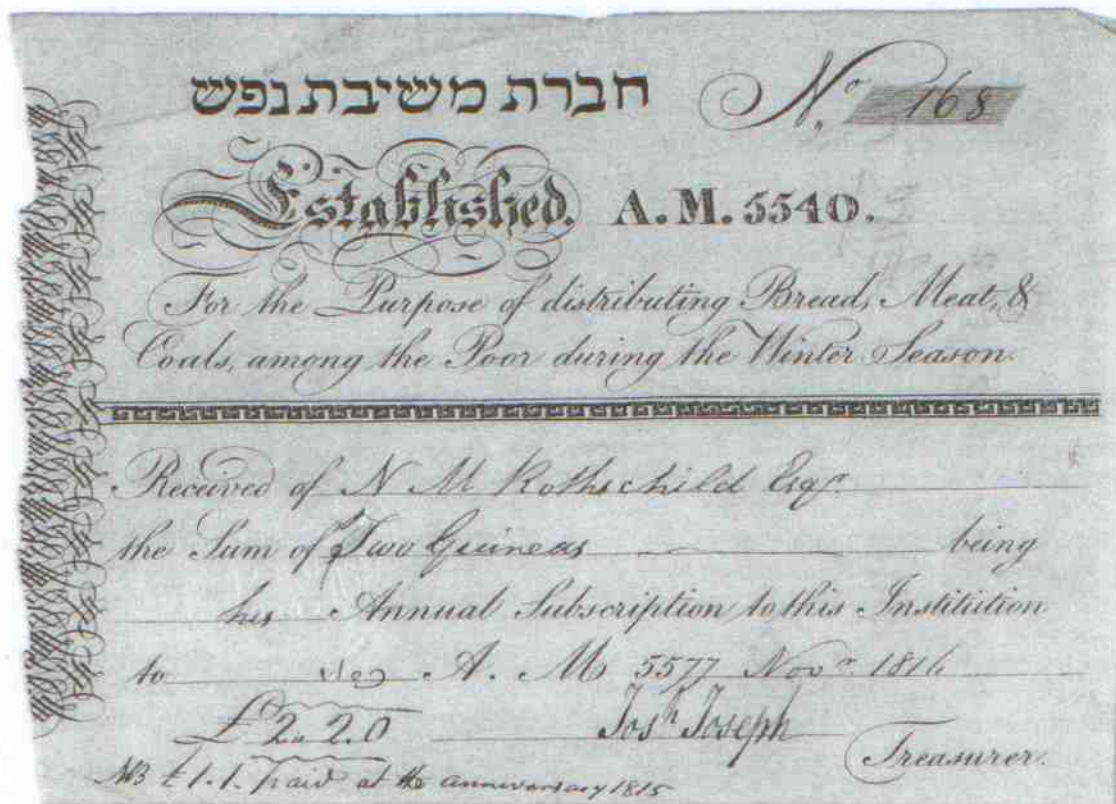 חברת משיבת נפש
No. 168
Established. A.M. 5540.
For the Purpose of distributing Bread, Meat, &
Coals, among the Poor during the Winter Season.
Received of N M Rothschild Esqr.
the Sum of Two Guineas being
his Annual Subscription to this Institution
to A. M. 5577 Novr 1816
£ 2.. 2.0 Josh Joseph
Treasurer.
NB £1.1. paid at the anniversary 1815